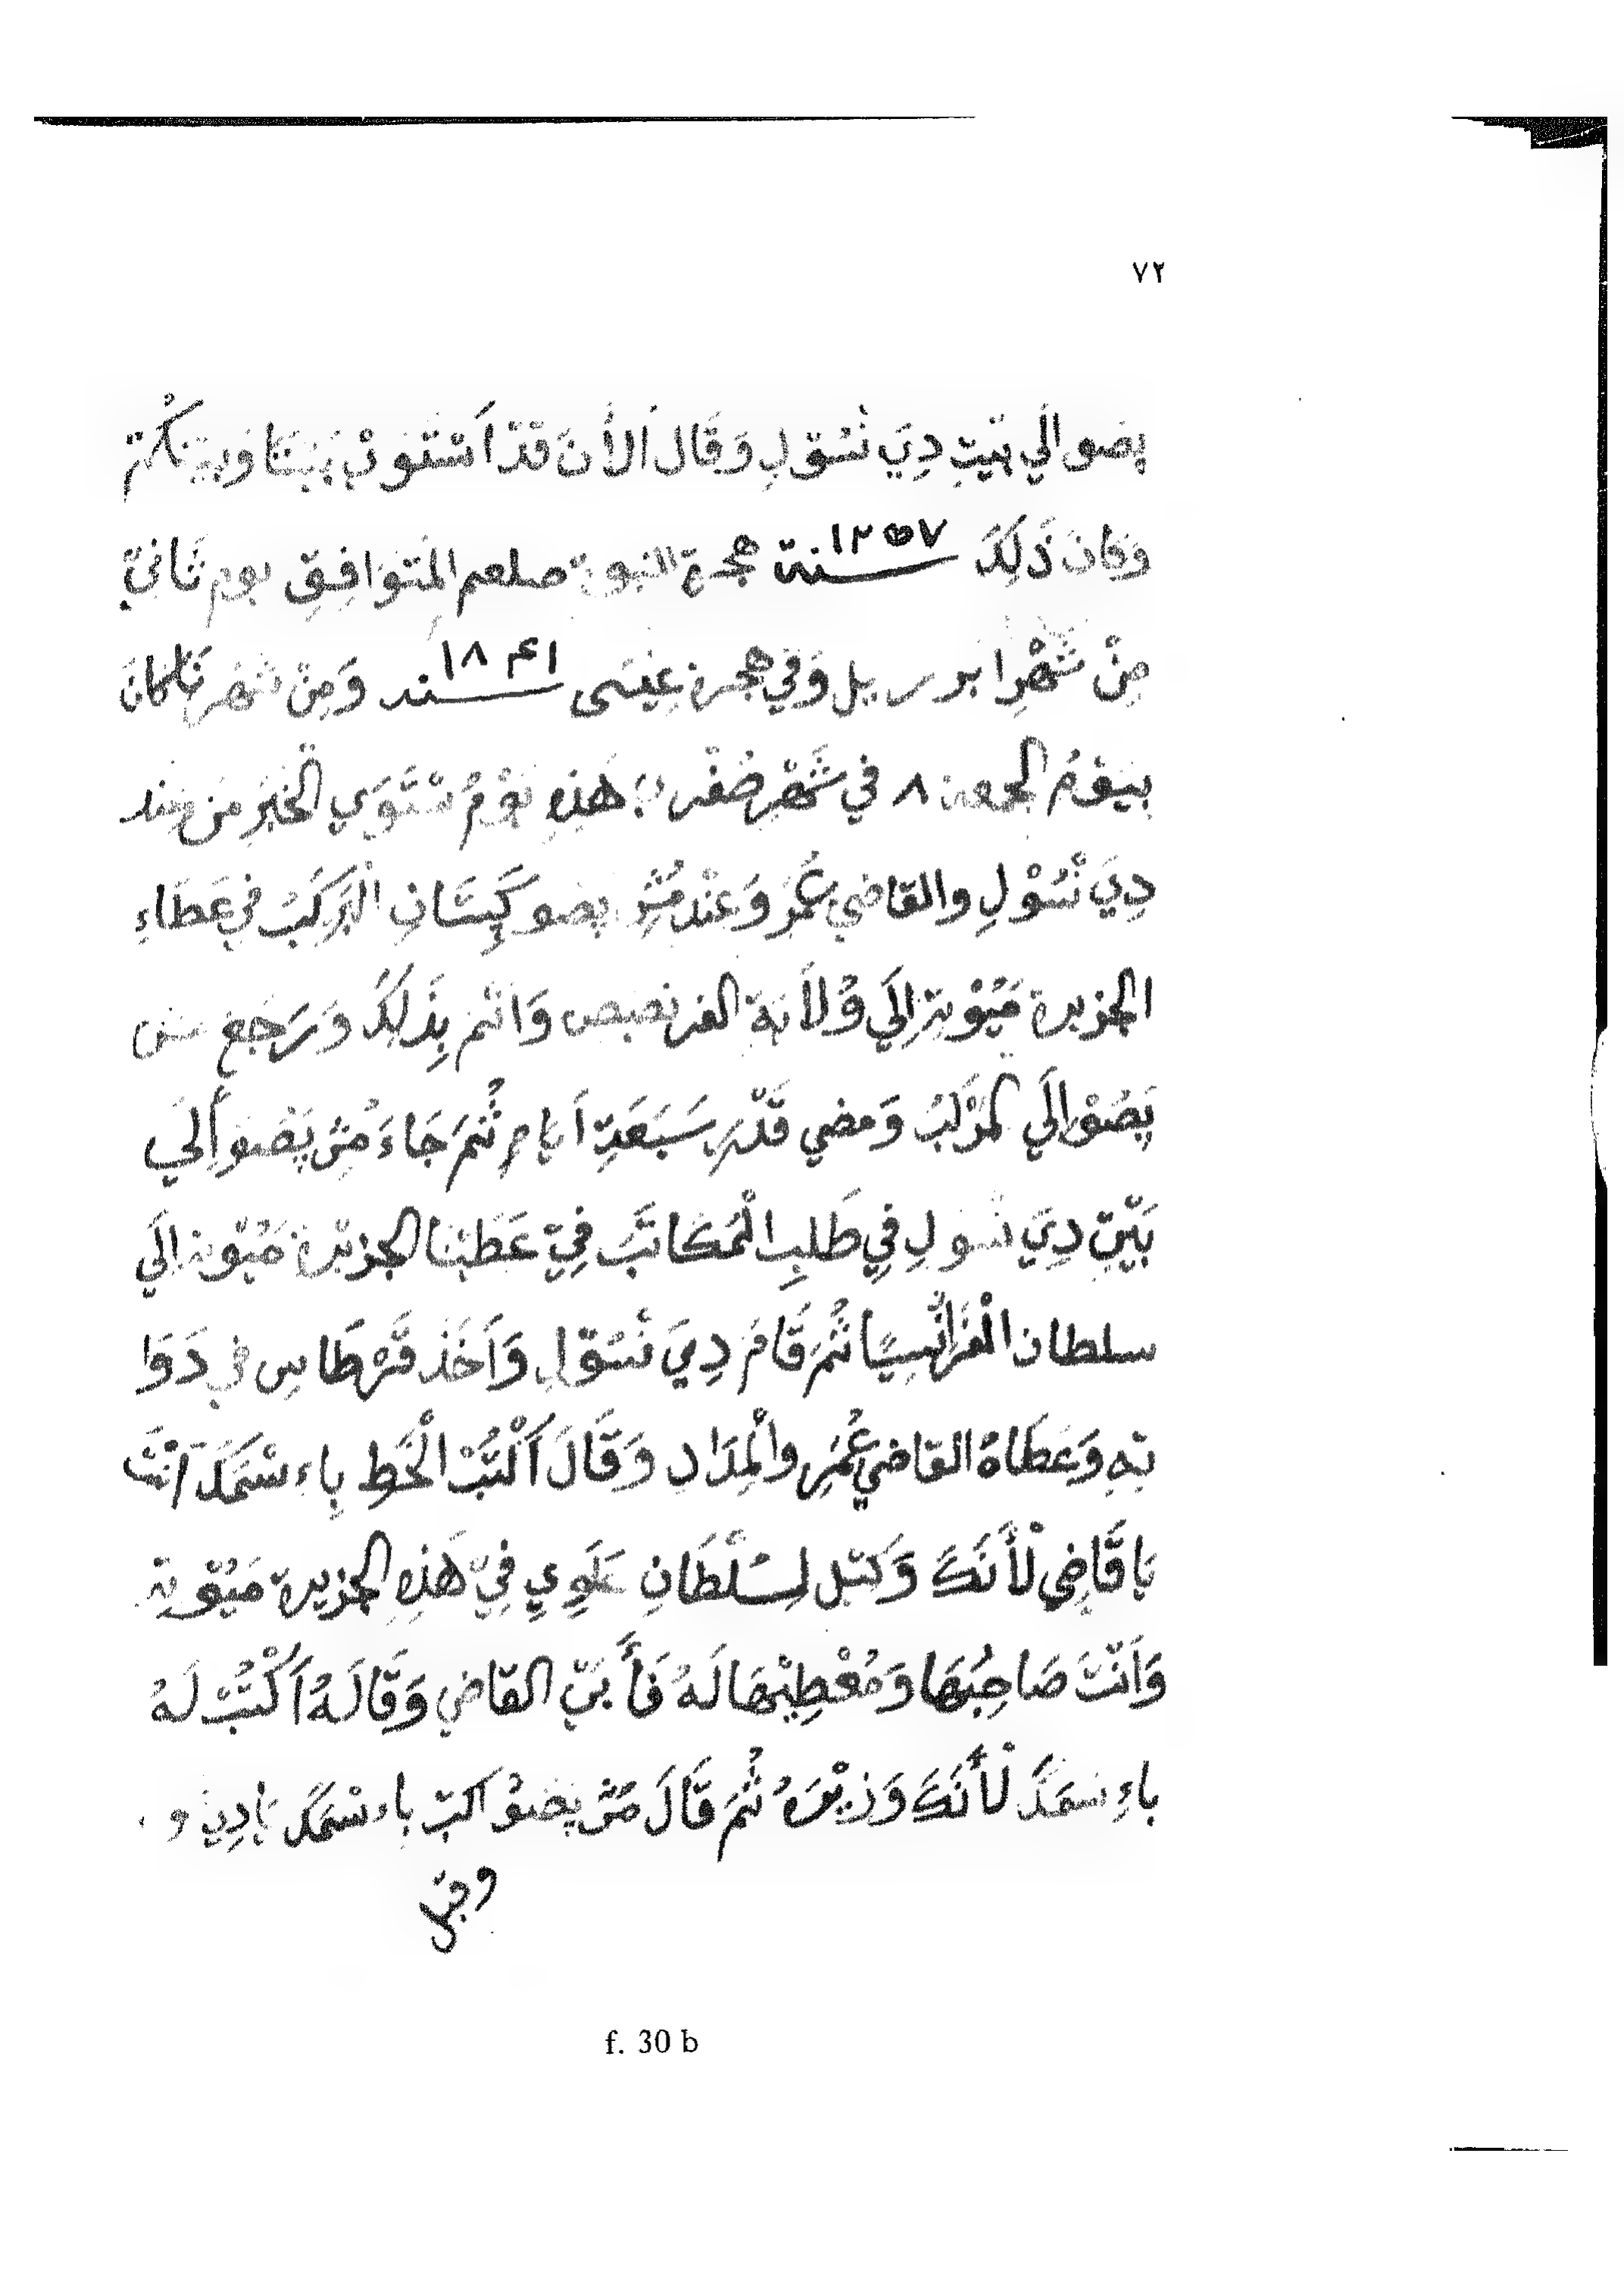 ٧٢
پصوا الَي بَيْتِ دِيَ نْسُوْلِ وَقَالَ الأَنَ قَدْ اَسْتَوَى بَيْنَنَا وَبَيْنَكُمْ
وَكَانَ ذَلِكَ سنة ١٢٥٧ هجرة النبوية صلعم المُتَوَافِقِ يوم ثَانِيْ
مِنْ شَهْرِ ابر ريل وَفِي هجرة عِيْسَى سنه ١٨٤١ وَمِنْ شهر
بيَوْمُ الجمعة ٨ في شَهْرِ صَفَر هَذِهِ يَوْمُ سْتَوَي الخَبَرْ مِن عِند
دِيَ نْسُوْلِ والقاضي عُمَرْ وَعَنْد مُسْ پصو كَپِتَانِ المَرْكَبْ فِي عَطَاءِ
الجزيرة مَيُوْتة اِلَي وُلاَيَة الفرنصيص وَاتْتم بِذَلِكَ وَرَجَعَ مُس
پَصُوْ اِلَي المَرْكَبْ وَمضي قَدْرِ سَبَعَةِ اَيَامِ ثُمَ جَاءَ مُسْ پَصُوْ اِلَي
بَيْتِ دِيَ نْسُولِ فِي طَلَبِ الْمُكَاتَبْ فِيْ عَطَيْنَا الجزيْرة مَيُوْتة اِلَي
سلطان الْفَرَانْسِيْسَا ثُمَ قَامَ دِيَ نْسُوْلِ وَاَخَذَ قَرْطَاسِ في دَوَا
تِهِ وَعَطَاهُ القاضي عُمَرْ والْمِدَادِ وَقَالَ اَكْتُبْ الْخَطِ بِاء سْمَكَ اَنْتَ
يَا قَاضِي لأَنَكَ وَكيْل لِسُلْطَانِ عَلَوِي فِيْ هَذِهِ الجزيرة مَيُوْتة
وَاَنْتَ صَاحِبُهَا وَمُعْطِيْهَا لَهُ فَأَ بَيْ القاضي وَقَالَهُ اَكْتُبْ لَهُ
باءِ سْمَكَ لأَنَكَ وَزِيْرَهُ ثُمَ قَالَ مُسْ پصُوْ اكتبْ باء سْمَكَ يَا دِيَ و
f. 30 b